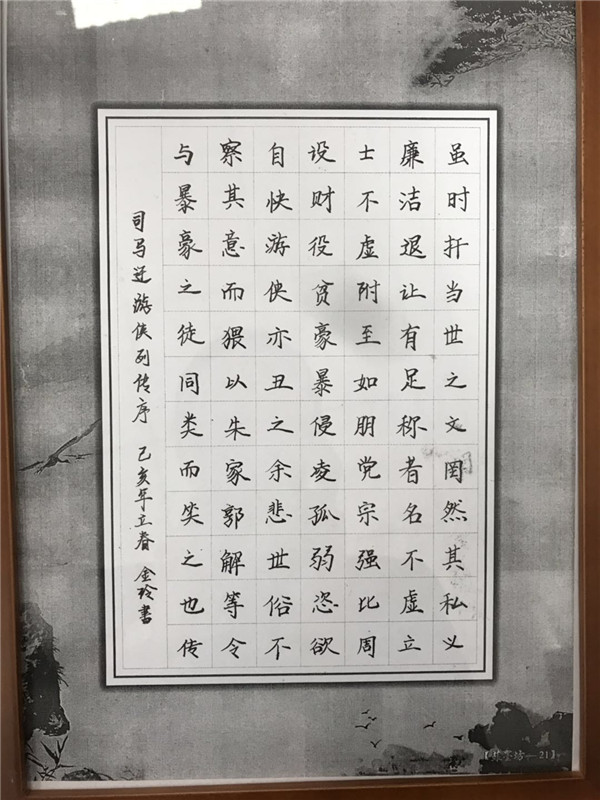 虽时扞当世之文罔然其私义
廉洁退让有足称者名不虚立
士不虚附至如朋党宗强比周
设财役贫豪暴侵凌孤弱恣欲
自快游侠亦丑之余悲世俗不
察其意而猥以朱家郭解等令
与暴豪之徒同类而笑之也传
司马迁游侠列传序 己亥年立春 金玲書